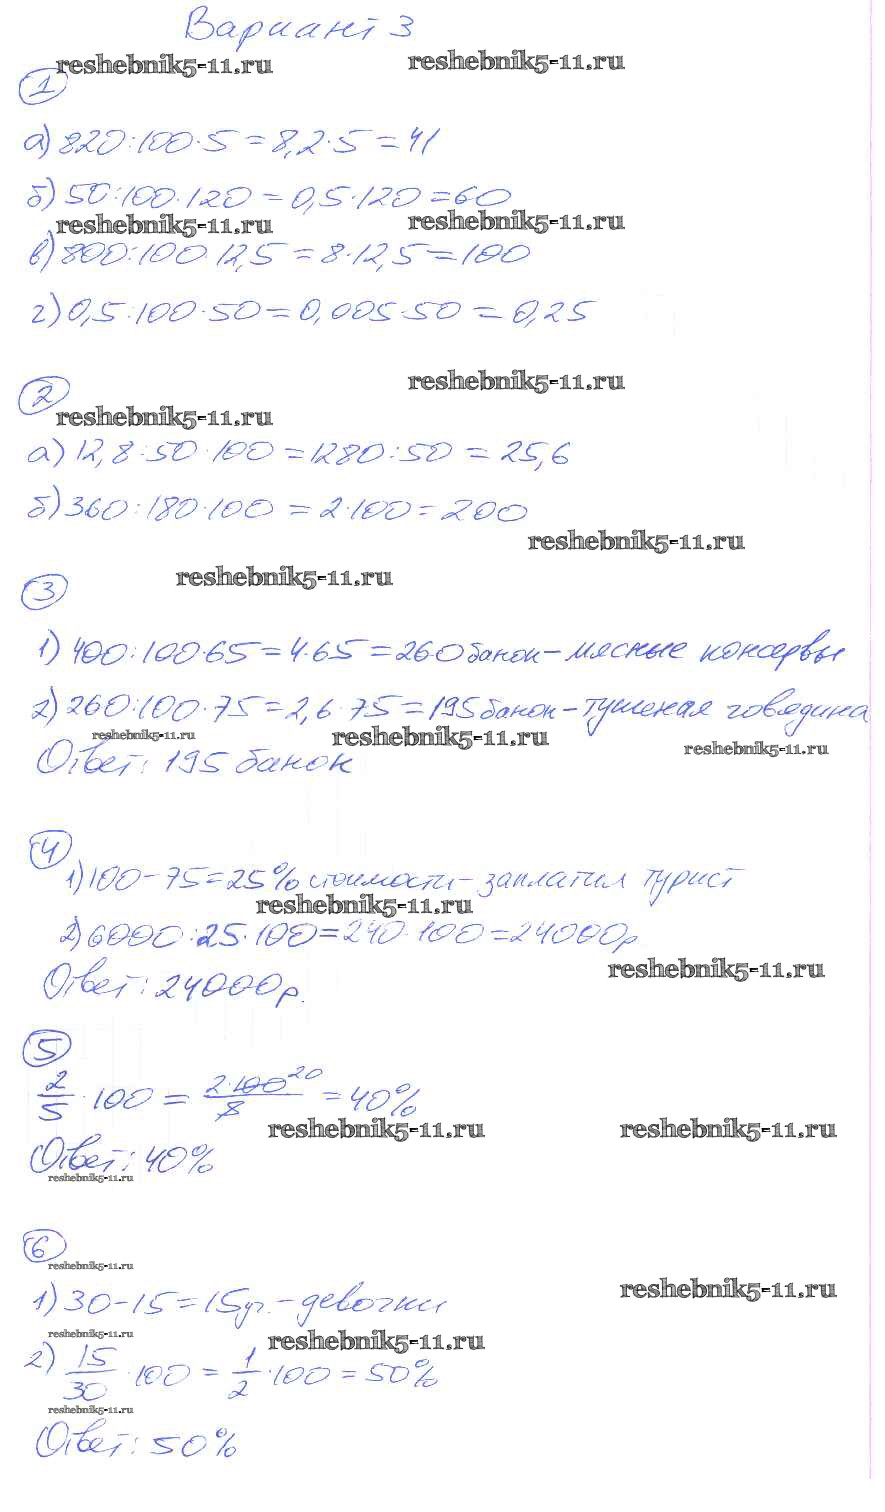 Вариант 3
reshebnik5-11.ru reshebnik5-11.ru
1
а) 820:100·5=8,2·5=41
б) 50:100·120=0,5·120=60
reshebnik5-11.ru reshebnik5-11.ru
в) 800:100·12,5=8·12,5=100
г) 0,5:100·50=0,005·50=0,25
reshebnik5-11.ru
2
reshebnik5-11.ru
а) 12,8:50·100=1280:50=25,6
б) 360:180·100=2·100=200
reshebnik5-11.ru
reshebnik5-11.ru
3
1) 400:100·65=4·65=260 банок-мясные консервы
2) 260:100·75=2,6·75=195 банок-тушеная говядина
reshebnik5-11.ru reshebnik5-11.ru reshebnik5-11.ru
Ответ: 195 банок
4
1) 100-75=25% стоимости-заплатил турист
reshebnik5-11.ru
2) 6000:25·100=240·100=24000р
reshebnik5-11.ru
Ответ: 24000р.
5
2/5·100=2·100/5 20=40%
reshebnik5-11.ru reshebnik5-11.ru
Ответ: 40%
reshebnik5-11.ru
6
reshebnik5-11.ru
reshebnik5-11.ru
1) 30-15=15уч.-девочки
reshebnik5-11.ru reshebnik5-11.ru
2) 15/30·100=1/2·100=50%
reshebnik5-11.ru
Ответ: 50%